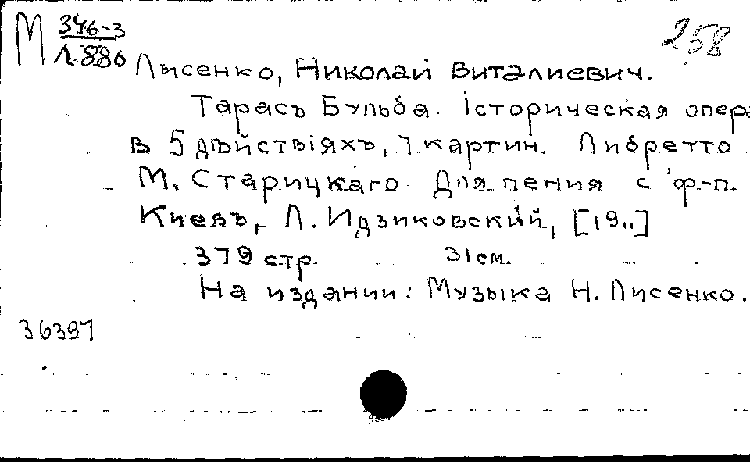 М 346-3
Л.880
258
Лысенко, Николай Виталиевич.
Тарасъ Бульба. Історическая опера
в 5 дѣйствіяхъ, 7 картин. Либретто
М. Старицкаго. Для пения с ф.-п.
Киевъ, Л. Идзиковский, [19..]
379 стр. 31 см.
На издании: Музыка Н. Лисенко.
36397